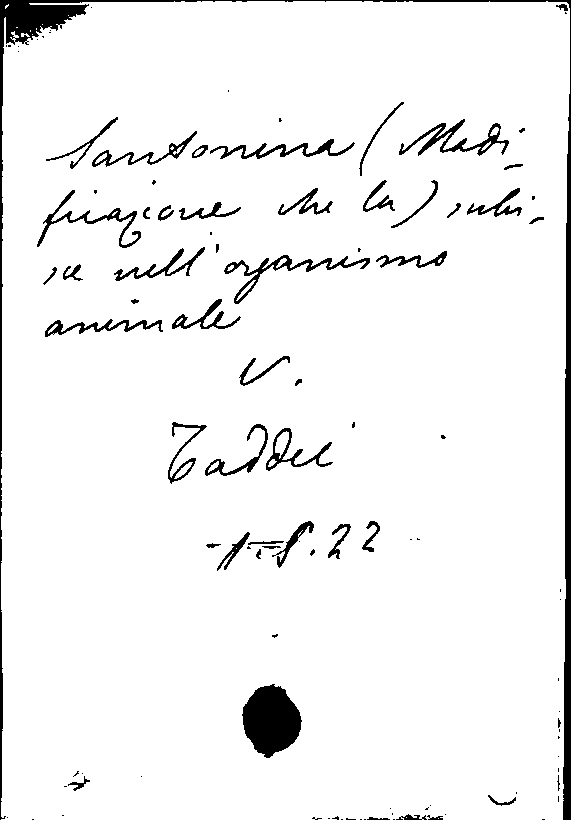 Santonina (Modi-
ficazione che la) subi-
sce nell'organismo
animale
V.
Taddei
1.S.22